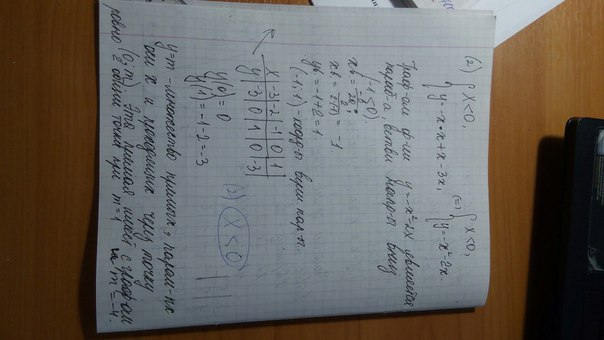 (2) { x<0, y=-x•x+x-3x, (=) { x<0, y=-x²-2x.
Граф-ом ф-ии y=-x²-2x является
параб-а, ветви напр-ы вниз
(-1<0)
xb = -b/2a;
xb = 2/2•(-1) = -1
yb = -1+2=1.
(-1;1) - коорд-ы верш. пар-ы.
x | -3 | -2 | -1 | 0 | 1
y | -3 | 0 | 1 | 0 | -3
y(0) = 0
y(1) = -1-2=-3
(2) x<0
y=m - множество прямых, парал-ых
оси x и проходящих через точку
(0;m). Эта прямая имеет с графиком
ровно 2 общие точки при m=1
m=-4.